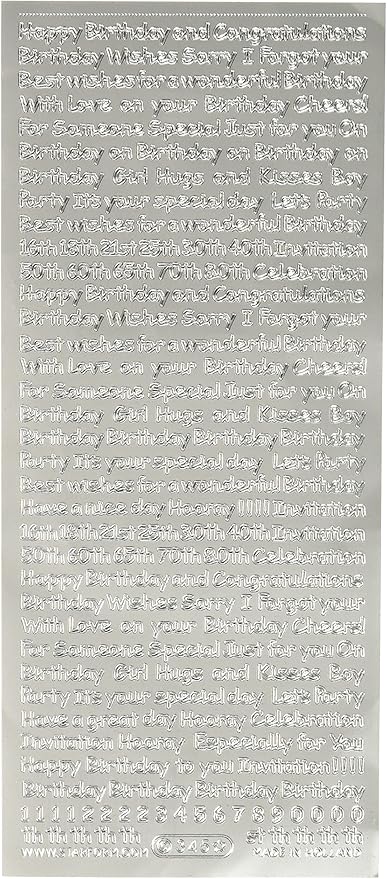 Happy Birthday and Congratulations
Birthday Wishes Sorry I Forgot your
Best wishes for a wonderful Birthday
With Love on your Birthday Cheers!
For Someone Special Just for you On
Birthday on Birthday on Birthday on
Birthday Girl Hugs and Kisses Boy
Party It's your special day Let's Party
Best wishes for a wonderful Birthday
16th 18th 21st 25th 30th 40th Invitation
50th 60th 65th 70th 80th Celebration
Happy Birthday and Congratulations
Birthday Wishes Sorry I Forgot your
Best wishes for a wonderful Birthday
With Love on your Birthday Cheers!
For Someone Special Just for you On
Birthday Girl Hugs and Kisses Boy
Birthday Birthday Birthday Birthday
Party It's your special day Let's Party
Best wishes for a wonderful Birthday
Have a nice day Hooray !!!!! Invitation
16th 18th 21st 25th 30th 40th Invitation
50th 60th 65th 70th 80th Celebration
Happy Birthday and Congratulations
Birthday Wishes Sorry I Forgot your
With Love on your Birthday Cheers!
For Someone Special Just for you On
Birthday Girl Hugs and Kisses Boy
Party It's your special day Let's Party
Have a great day Hooray Celebration
Invitation Hooray Especially for You
Happy Birthday to you Invitation!!!!
Birthday Birthday Birthday Birthday
1 1 1 1 2 2 2 2 3 4 5 6 7 8 9 0 0 0 0
th th th th th st th th th th
WWW.STARFORM.COM 345 MADE IN HOLLAND